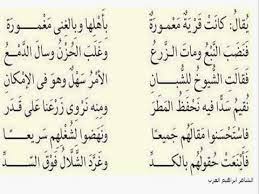 يُقالُ: كانَتْ قَرْيَةٌ مَعْمُورَةٌ بِأَهْلِها وبالغِنى مَغْمُورَةٌ
فَنَضَبَ النَّبْعُ وماتَ الزَّرعُ وغَلَبَ الحُزْنُ وسالَ الدَّمْعُ
فقالتِ الشُّيوخُ للشُّبانِ الأمرُ سَهْلٌ وهوَ في الإمْكانِ
نُقيمُ سَدًّا فيه نَحفَظُ المَطَرَ ومِنه نَروي زَرْعَنا على قَدَر
فاسْتَحسَنوا مَقالَهُمْ جَميعًا ونَهَضوا لِشُغْلِهِم سَريعًا
فأيْنَعَتْ حُقولُهُم بالكَدِّ وغَرَّدَ الشَّلَّالُ فَوْقَ السَّدِّ
الشاعر ابراهيم العرب